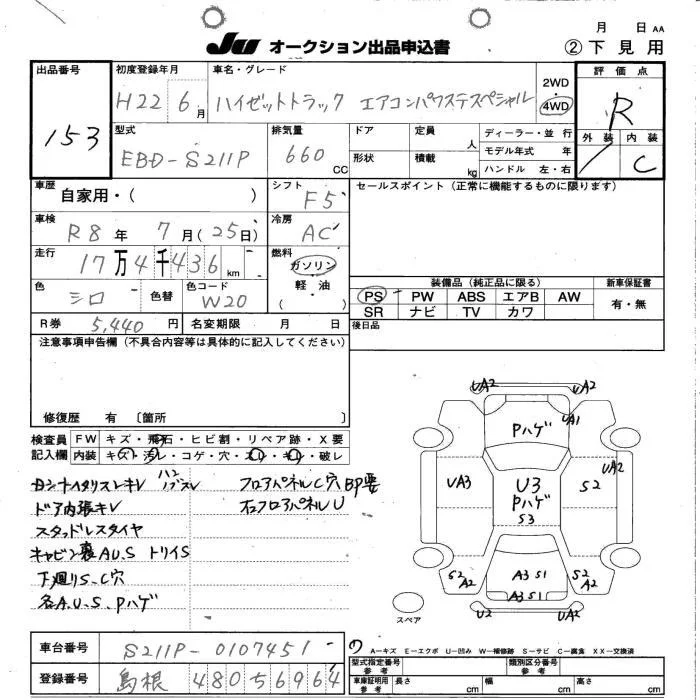 月 日 AA
JU オークション出品申込書
② 下見用
出品番号
153
初度登録年月
H22 6月
車名・グレード
ハイゼットトラック エアコンパワステスペシャル
2WD
4WD
評価点
R
外装 内装
C
型式
EBD-S211P
排気量
660 CC
ドア
定員 人
形状
積載 kg
ディーラー・並行
モデル年式 年
ハンドル 左・右
車歴
自家用・( )
シフト
F5
セールスポイント(正常に機能するものに限ります)
車検
R8年 7月(25日)
冷房
AC
走行
17万4千436km
燃料
ガソリン
軽油
( )
色
シロ
色替
色コード
W20
装備品(純正品に限る)
新車保証書
PS PW ABS エアB AW
SR ナビ TV カワ
有・無
R券 5,440円
名変期限 月 日
後日品
注意事項申告欄(不具合内容等は具体的に記入してください)
修復歴 有〔箇所 〕
検査員記入欄
FW キズ・飛石・ヒビ割・リペア跡・X要
内装 キズ・汚レ・コゲ・穴・スレ・キレ・破レ
フロアパネルC穴BP要
ドア内張キレ
右フロアパネルU
スタッドレスタイヤ
キャビン裏A.U.S トリイS
下廻りS.C穴
各A.U.S.Pハゲ
UA2 UA2
UA1
Pハゲ
UA3
U3
Pハゲ
S3
UA2
S2
S2
A2
A3 S1
A3 S1
S2
A2
U2 UA2
スペア
A-キズ E-エクボ U-凹み W-補修跡 S-サビ C-腐食 XX-交換済
車台番号
S211P-0107451
登録番号
島根 480 5 6964
型式指定番号 参考
類別区分番号 参考
車庫証明用 参考
長さ cm
幅 cm
高さ cm